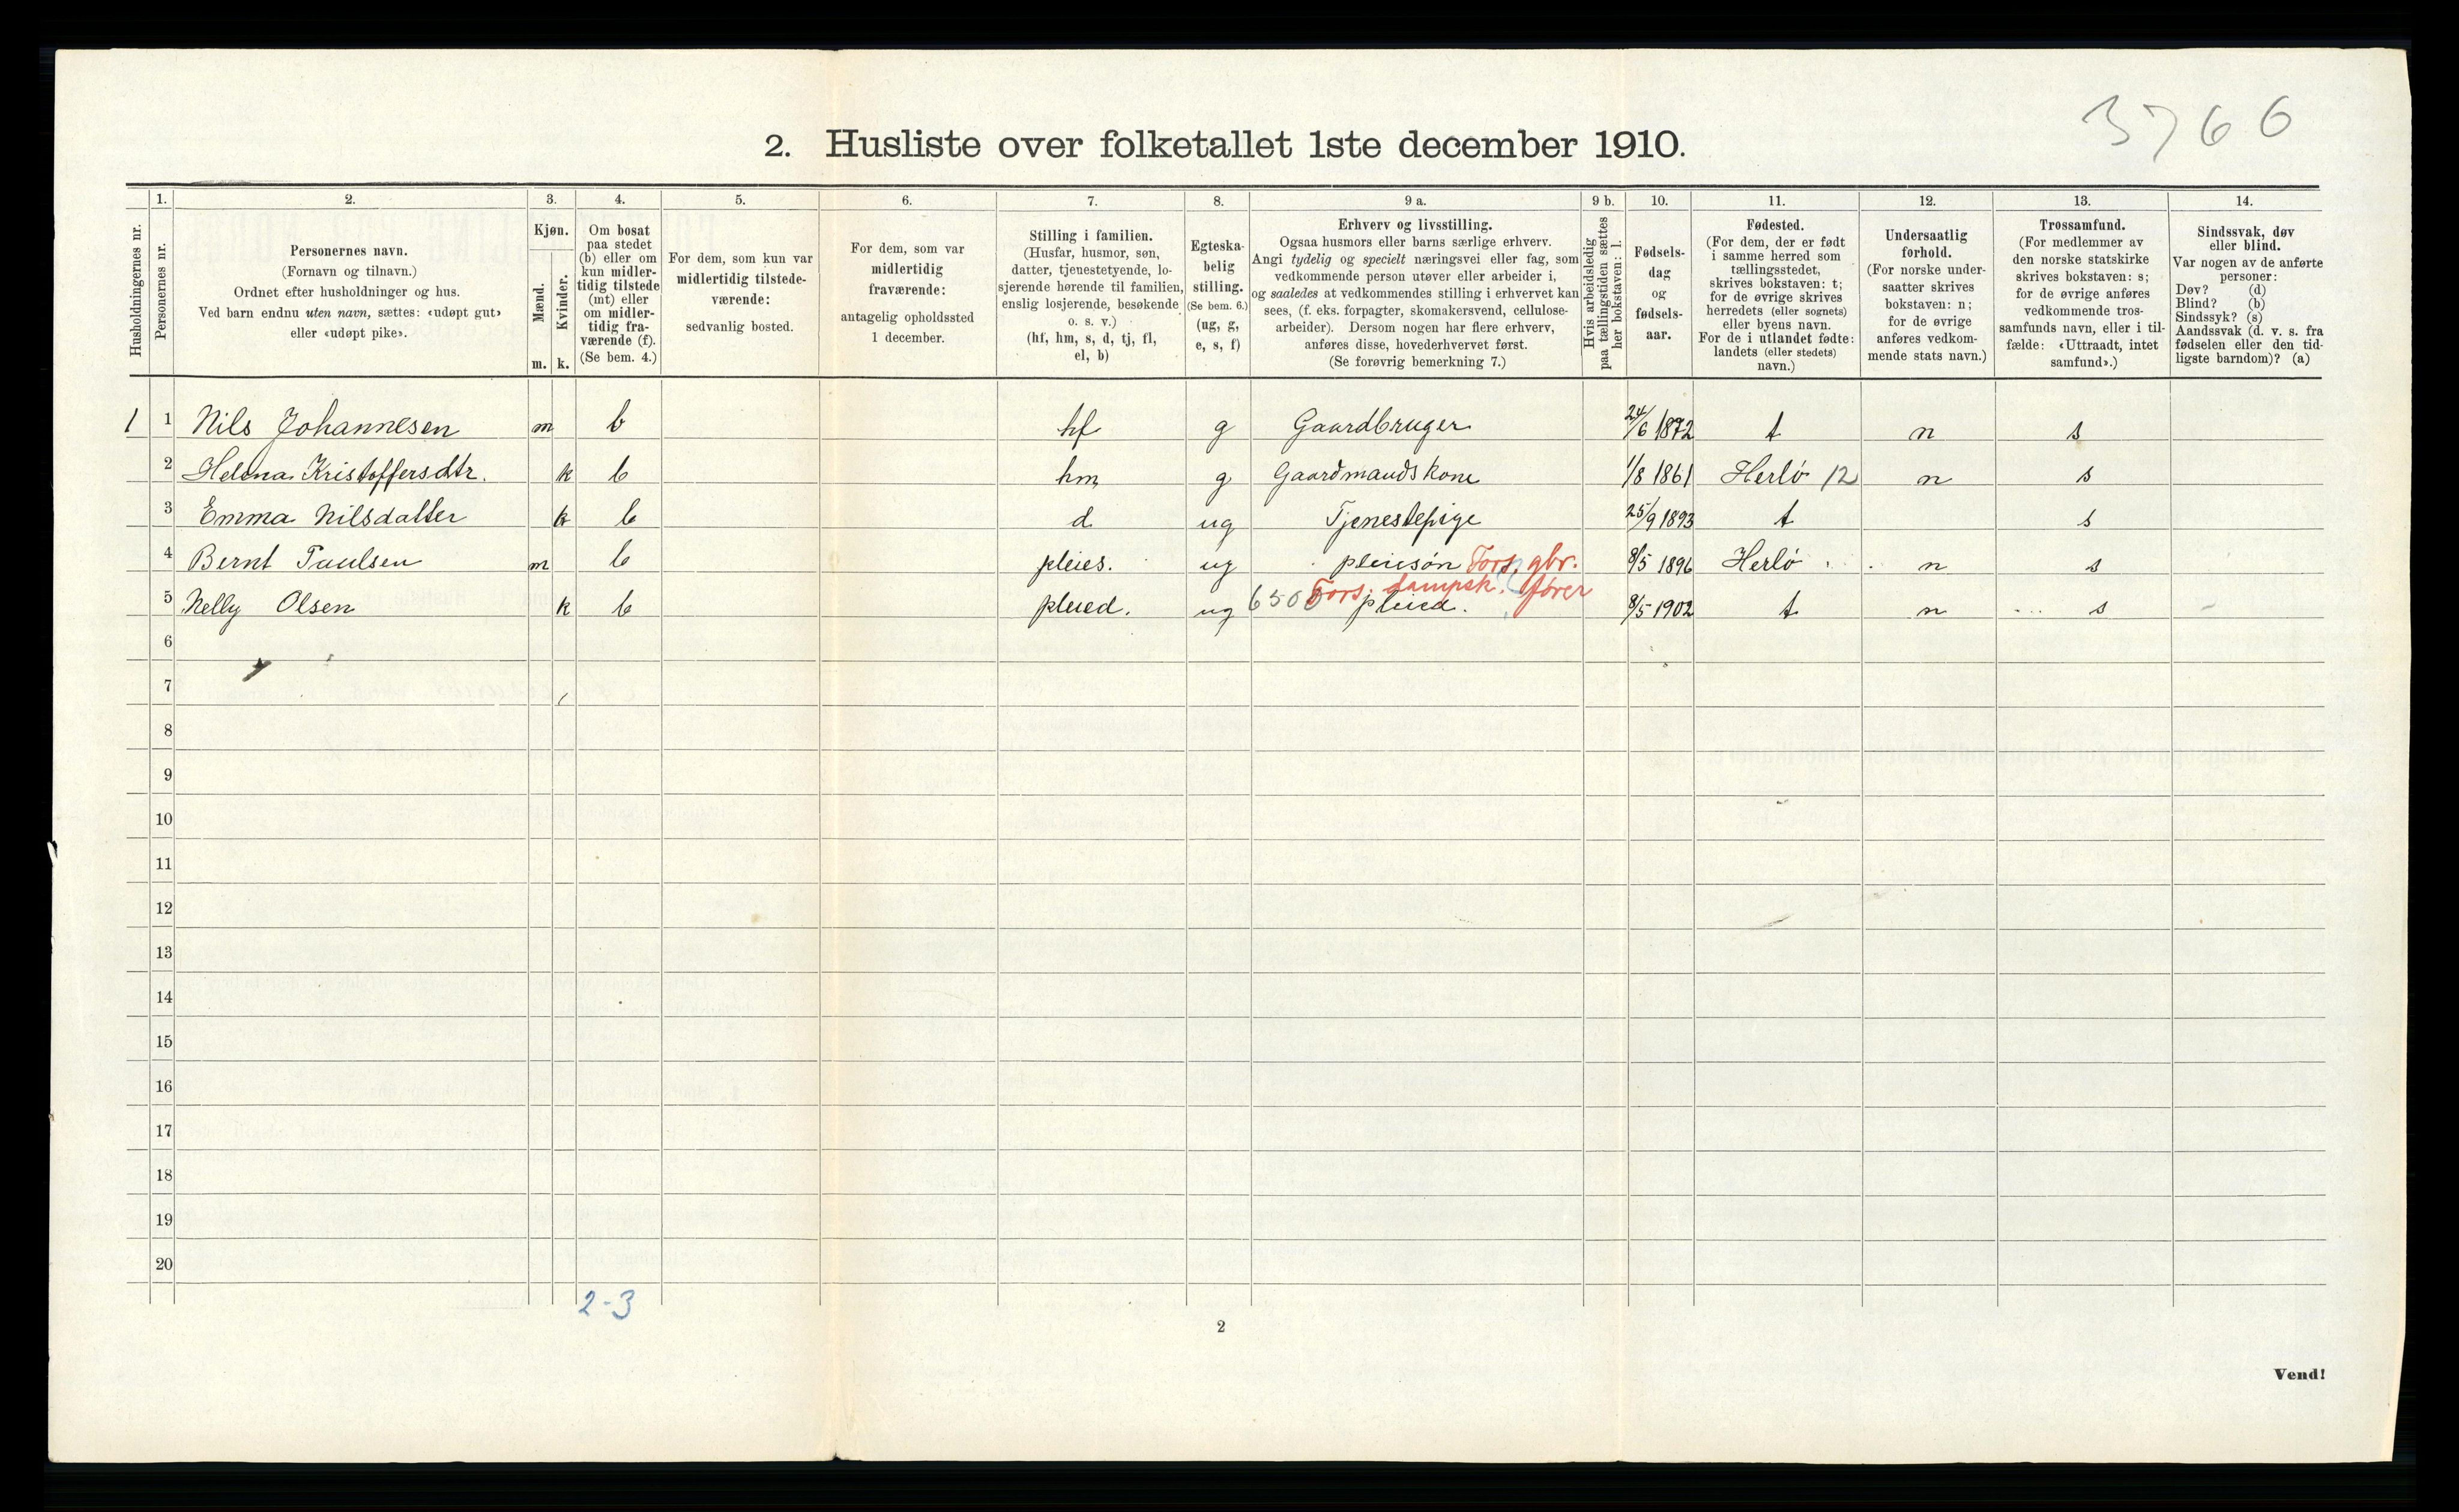 3766
2. Husliste over folketallet 1ste december 1910.
Husholdningernes nr.
1.
Personernes nr.
2.
Personernes navn.
(Fornavn og tilnavn.)
Ordnet efter husholdninger og hus.
Ved barn endnu uten navn, sættes: «udøpt gut»
eller «udøpt pike».
3.
Kjøn.
Mænd.
Kvinder.
m. k.
4.
Om bosat
paa stedet
(b) eller om
kun midler-
tidig tilstede
(mt) eller
om midler-
tidig fra-
værende (f).
(Se bem. 4.)
5.
For dem, som kun var
midlertidig tilstede-
værende:
sedvanlig bosted.
6.
For dem, som var
midlertidig
fraværende:
antagelig opholdssted
1 december.
7.
Stilling i familien.
(Husfar, husmor, søn,
datter, tjenestetyende, lo-
sjerende hørende til familien,
enslig losjerende, besøkende
o. s. v.)
(hf, hm, s, d, tj, fl,
el, b)
8.
Egteska-
belig
stilling.
(Se bem. 6.)
(ug, g,
e, s, f)
9 a.
Erhverv og livsstilling.
Ogsaa husmors eller barns særlige erhverv.
Angi tydelig og specielt næringsvei eller fag, som
vedkommende person utøver eller arbeider i,
og saaledes at vedkommendes stilling i erhvervet kan
sees, (f. eks. forpagter, skomakersvend, cellulose-
arbeider). Dersom nogen har flere erhverv,
anføres disse, hovederhvervet først.
(Se forøvrig bemerkning 7.)
9 b.
Hvis arbeidsledig
paa tællingstiden sættes
her bokstaven: l.
10.
Fødsels-
dag
og
fødsels-
aar.
11.
Fødested.
(For dem, der er født
i samme herred som
tællingsstedet,
skrives bokstaven: t;
for de øvrige skrives
herredets (eller sognets)
eller byens navn.
For de i utlandet fødte:
landets (eller stedets)
navn.)
12.
Undersaatlig
forhold.
(For norske under-
saatter skrives
bokstaven: n;
for de øvrige
anføres vedkom-
mende stats navn.)
13.
Trossamfund.
(For medlemmer av
den norske statskirke
skrives bokstaven: s;
for de øvrige anføres
vedkommende tros-
samfunds navn, eller i til-
fælde: «Uttraadt, intet
samfund».)
14.
Sindssvak, døv
eller blind.
Var nogen av de anførte
personer:
Døv? (d)
Blind? (b)
Sindssyk? (s)
Aandssvak (d. v. s. fra
fødselen eller den tid-
ligste barndom)? (a)
1 1 Nils Johannesen m b hf g Gaardbruger 24/6 1872 t n s
2 Helena Kristoffersdtr. k b hm g Gaardmandskone 1/8 1861 Herlö 12 n s
3 Emma Nilsdatter k b d ug Tjenestepige 25/9 1893 t s
4 Bernt Paulsen m b pleies. ug pleiesön Fors. gbr. 8/5 1896 Herlö n s
Fors. dampsk. fører
5 Nelly Olsen k b pleied. ug 6500 pleied. 8/5 1902 t n s
6
7
8
9
10
11
12
13
14
15
16
17
18
19
20
2-3
2
Vend!